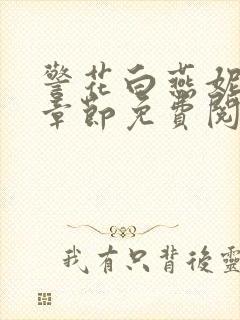 警花白燕妮
章節免費閱
我有只背後靈